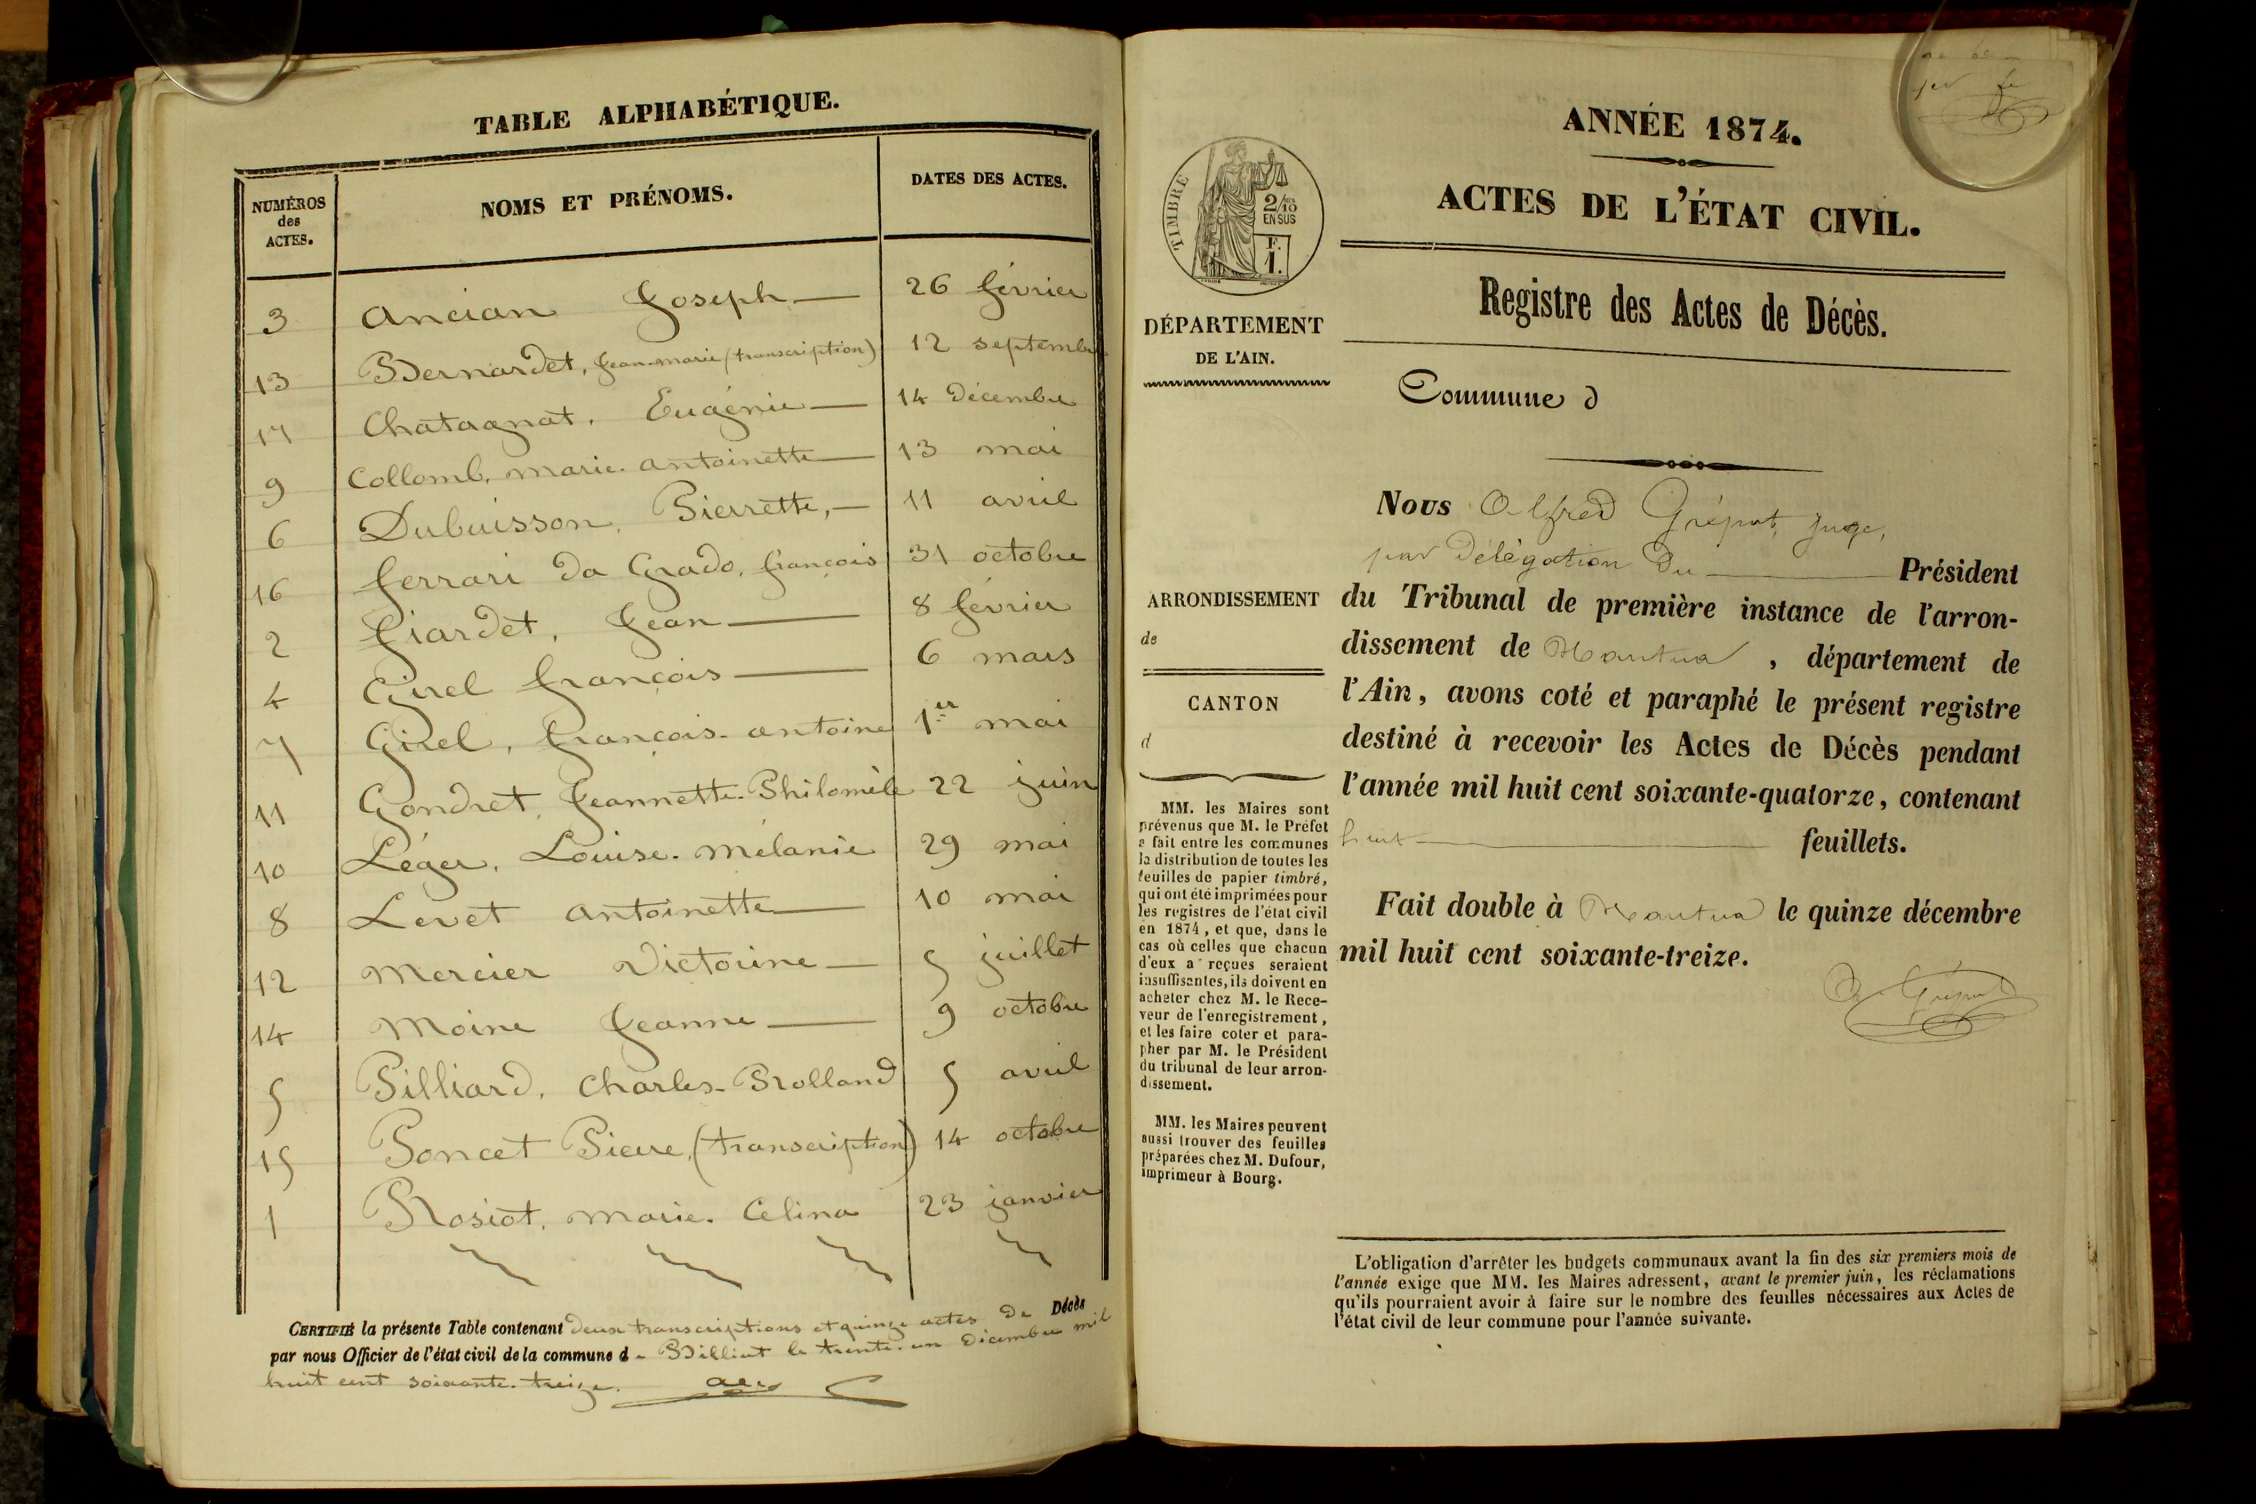 TABLE ALPHABÉTIQUE.
NUMÉROS des ACTES. NOMS ET PRÉNOMS. DATES DES ACTES.
3 Ancian Joseph 26 février
13 Bernardet, Jean-marie (transcription) 12 septembre
17 Chatagnat. Eugénie 14 Décembre
9 Collomb, marie. antoinette 13 mai
6 Dubuisson, Pierrette, 11 avril
16 ferrari Da Grado, françois 31 octobre
2 fiardet, Jean 8 février
4 Girel françois 6 mars
7 Girel, françois. antoine 1er mai
11 Gondret, Jeannette. Philomèle 22 juin
10 Léger, Louise. mélanie 29 mai
8 Levet antoinette 10 mai
12 Mercier Victorine 5 juillet
14 Moine Jeanne 9 octobre
5 Pilliard, Charles-Rolland 5 avril
15 Poncet Pierre, (transcription) 14 octobre
1 Rosiot, marie. Célina 23 janvier
CERTIFIÉ la présente Table contenant Deux transcriptions et quinze actes De Décès
par nous Officier de l'état civil de la commune de Billiat le trente. un Décembre mil
huit cent soixante. treize.
ANNÉE 1874.
ACTES DE L'ÉTAT CIVIL.
Registre des Actes de Décès.
TIMBRE
2/10
EN SUS
F.
1.
DÉPARTEMENT
DE L'AIN.
Commune d
Nous Alfred Grépat, juge,
par Délégation Du Président
du Tribunal de première instance de l'arron-
dissement de Nantua, département de
l'Ain, avons coté et paraphé le présent registre
destiné à recevoir les Actes de Décès pendant
l'année mil huit cent soixante-quatorze, contenant
huit feuillets.
Fait double à Nantua le quinze décembre
mil huit cent soixante-treize.
ARRONDISSEMENT
de
CANTON
d
MM. les Maires sont
prévenus que M. le Préfet
a fait entre les communes
la distribution de toutes les
feuilles de papier timbré,
qui ont été imprimées pour
les registres de l'état civil
en 1874, et que, dans le
cas où celles que chacun
d'eux a reçues seraient
insuffisantes, ils doivent en
acheter chez M. le Rece-
veur de l'enregistrement,
et les faire coter et para-
pher par M. le Président
du tribunal de leur arron-
dissement.
MM. les Maires peuvent
aussi trouver des feuilles
préparées chez M. Dufour,
imprimeur à Bourg.
L'obligation d'arrêter les budgets communaux avant la fin des six premiers mois de
l'année exige que MM. les Maires adressent, avant le premier juin, les réclamations
qu'ils pourraient avoir à faire sur le nombre des feuilles nécessaires aux Actes de
l'état civil de leur commune pour l'année suivante.